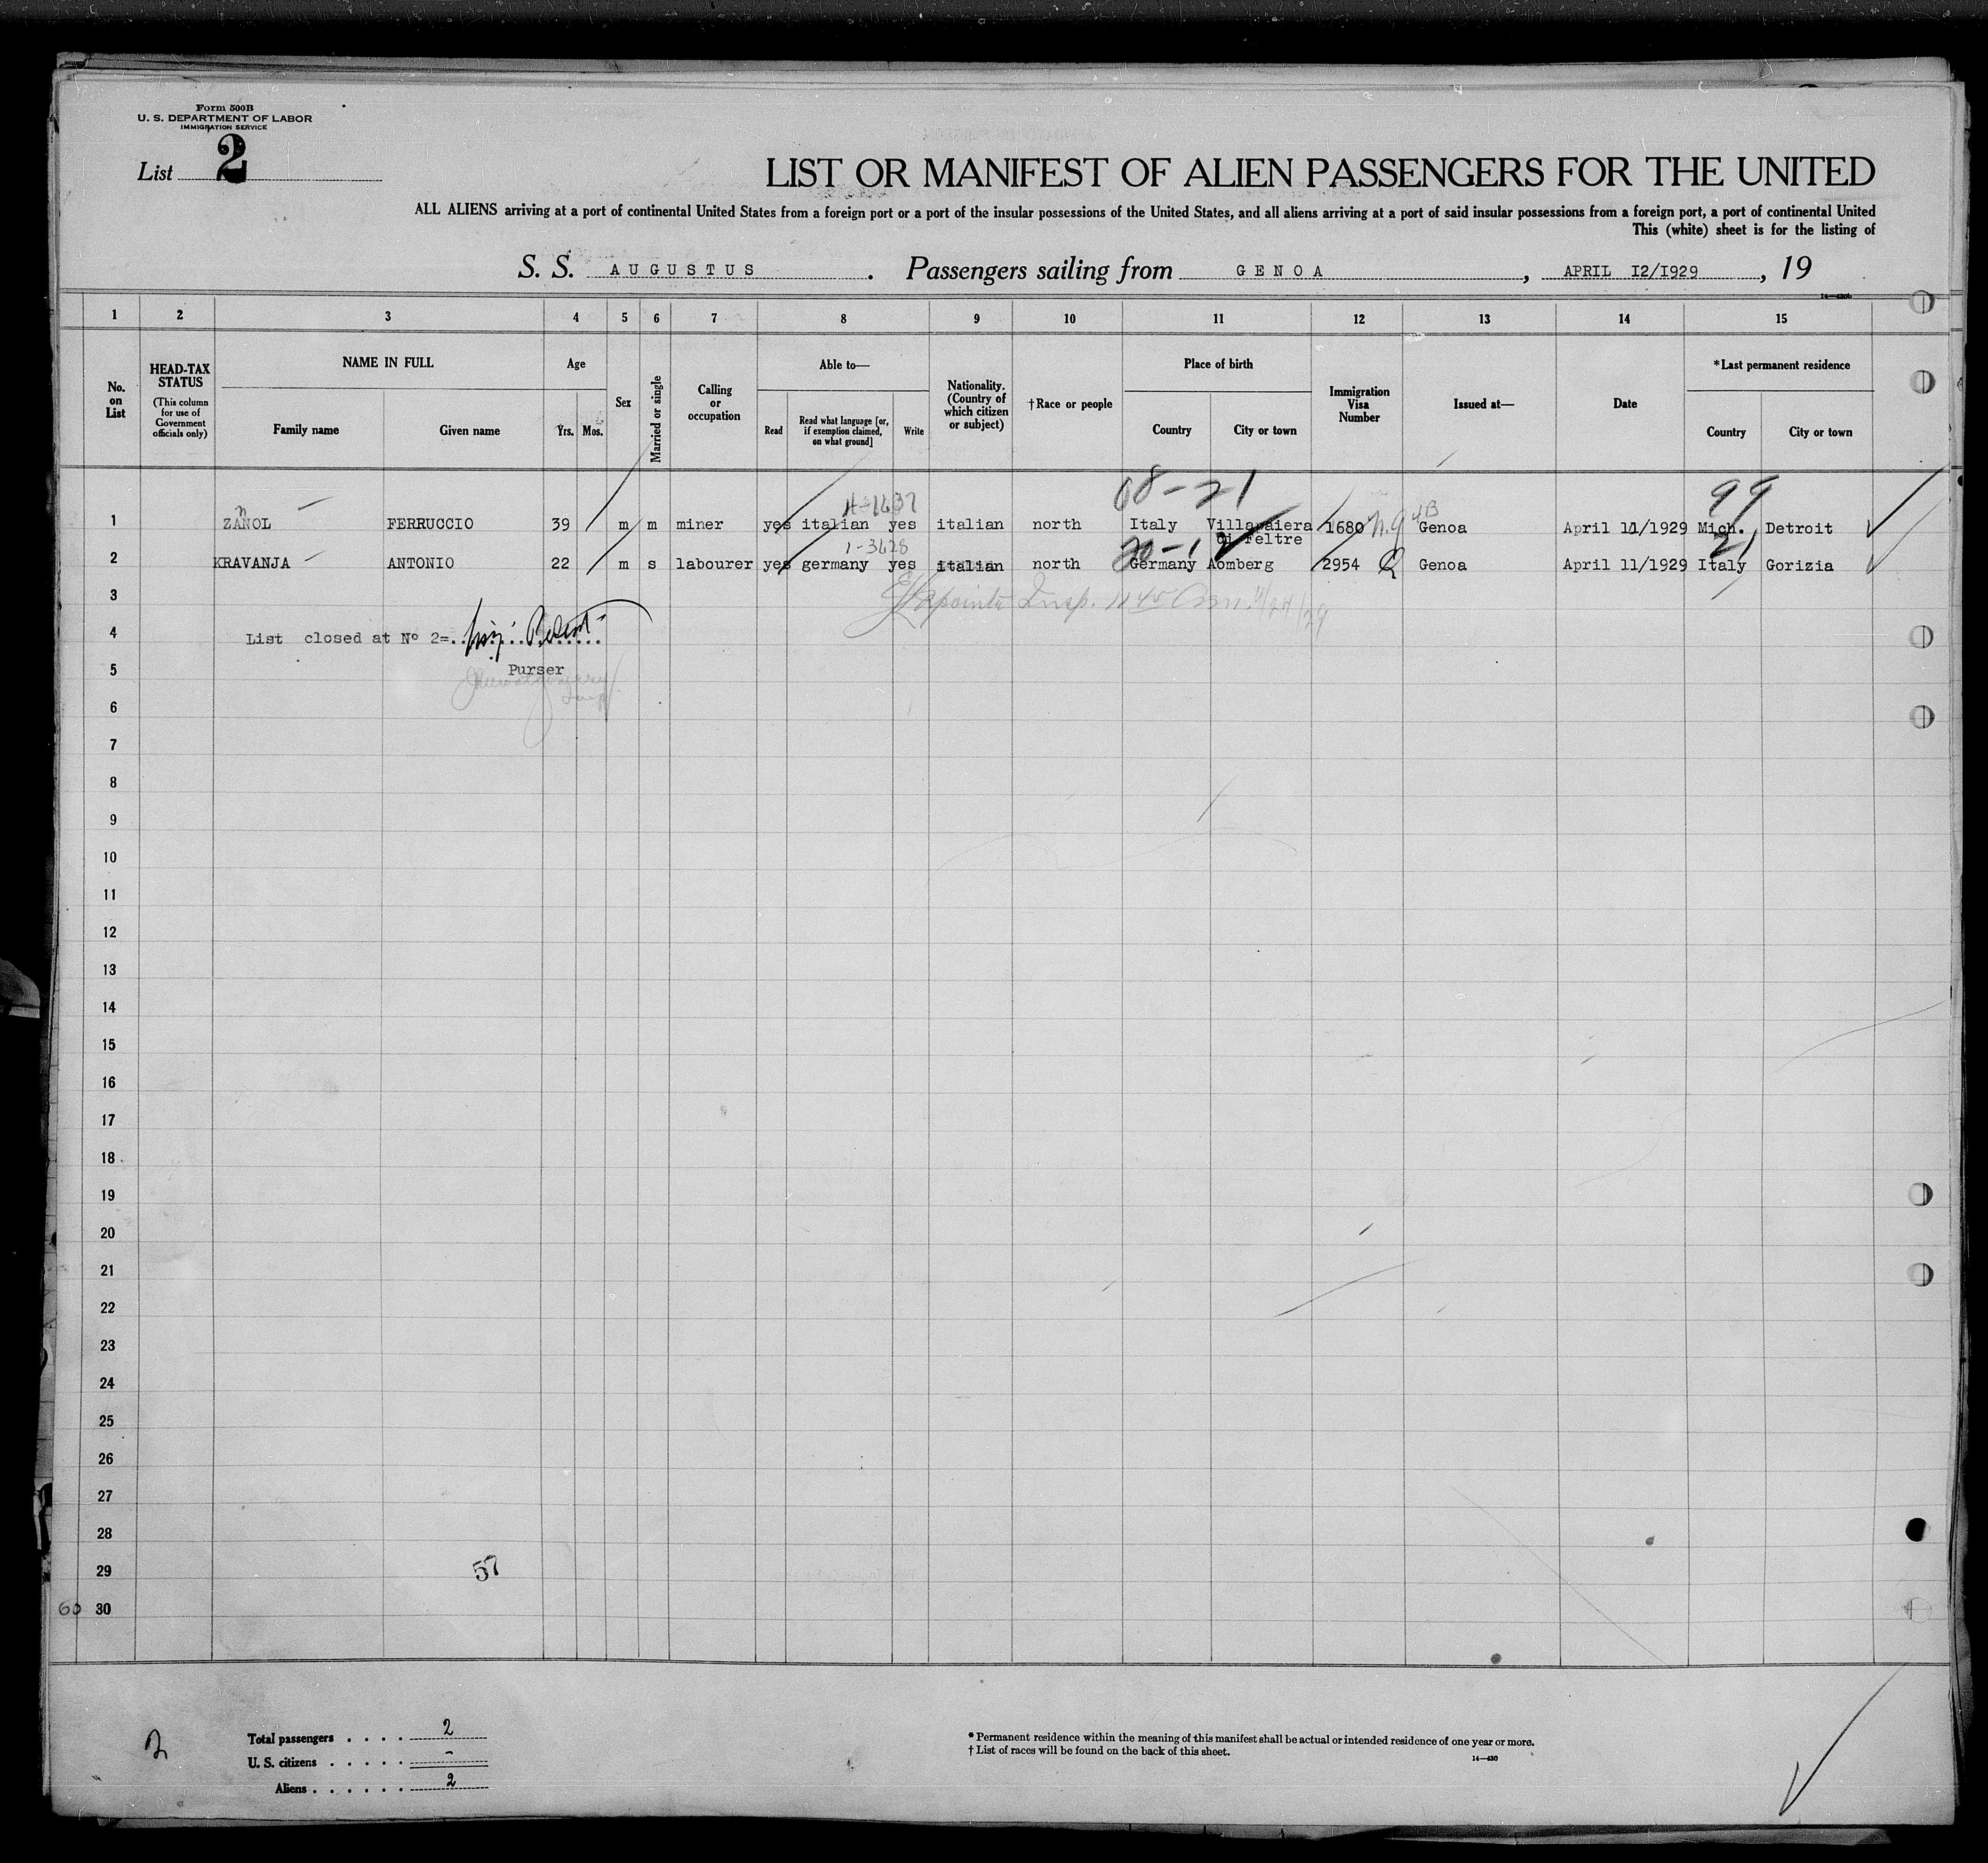 Form 500B
U. S. DEPARTMENT OF LABOR
IMMIGRATION SERVICE
List 2
LIST OR MANIFEST OF ALIEN PASSENGERS FOR THE UNITED
ALL ALIENS arriving at a port of continental United States from a foreign port or a port of the insular possessions of the United States, and all aliens arriving at a port of said insular possessions from a foreign port, a port of continental United
This (white) sheet is for the listing of
S. S. AUGUSTUS . Passengers sailing from GENOA , APRIL I2/I929 , 19
1 2 3 4 5 6 7 8 9 10 11 12 13 14 15
No. on List
HEAD-TAX STATUS
(This column for use of Government officials only)
NAME IN FULL
Family name Given name
Age
Yrs. Mos.
Sex
Married or single
Calling or occupation
Able to—
Read
Read what language [or, if exemption claimed, on what ground]
Write
Nationality. (Country of which citizen or subject)
†Race or people
Place of birth
Country City or town
Immigration Visa Number
Issued at—
Date
*Last permanent residence
Country City or town
08-21 99
4-1637
1 ZANOL FERRUCCIO 39 m m miner yes italian yes italian north Italy Villapaiera di Feltre 1680 n.q 4B Genoa April 11/1929 Mich. Detroit
1-3628 20-1 21
2 KRAVANJA ANTONIO 22 m s labourer yes germany yes italian north Germany Homberg 2954 Q Genoa April 11/1929 Italy Gorizia
3 Insp. 4/24/29
4 List closed at Nº 2=
5 Purser
6
7
8
9
10
11
12
13
14
15
16
17
18
19
20
21
22
23
24
25
26
27
28
29 57
60 30
2
Total passengers . . . . 2
U. S. citizens . . . . . -
Aliens . . . . . . 2
* Permanent residence within the meaning of this manifest shall be actual or intended residence of one year or more.
† List of races will be found on the back of this sheet.
14—430